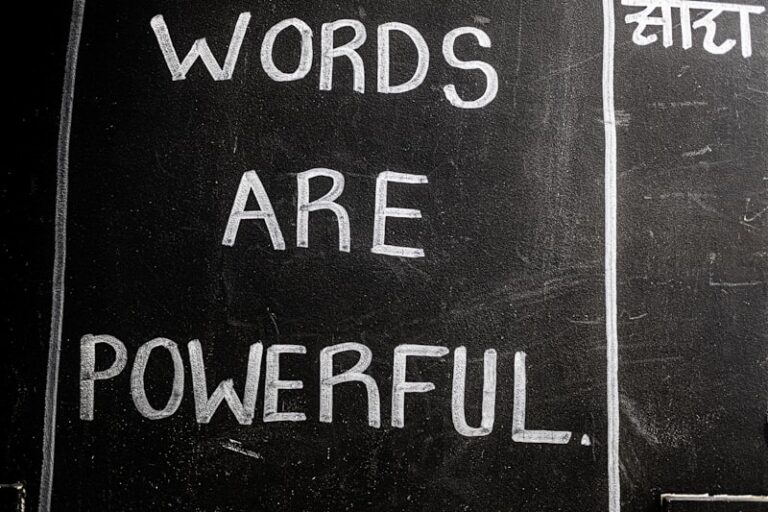 WORDS
ARE
POWERFUL.
सारा